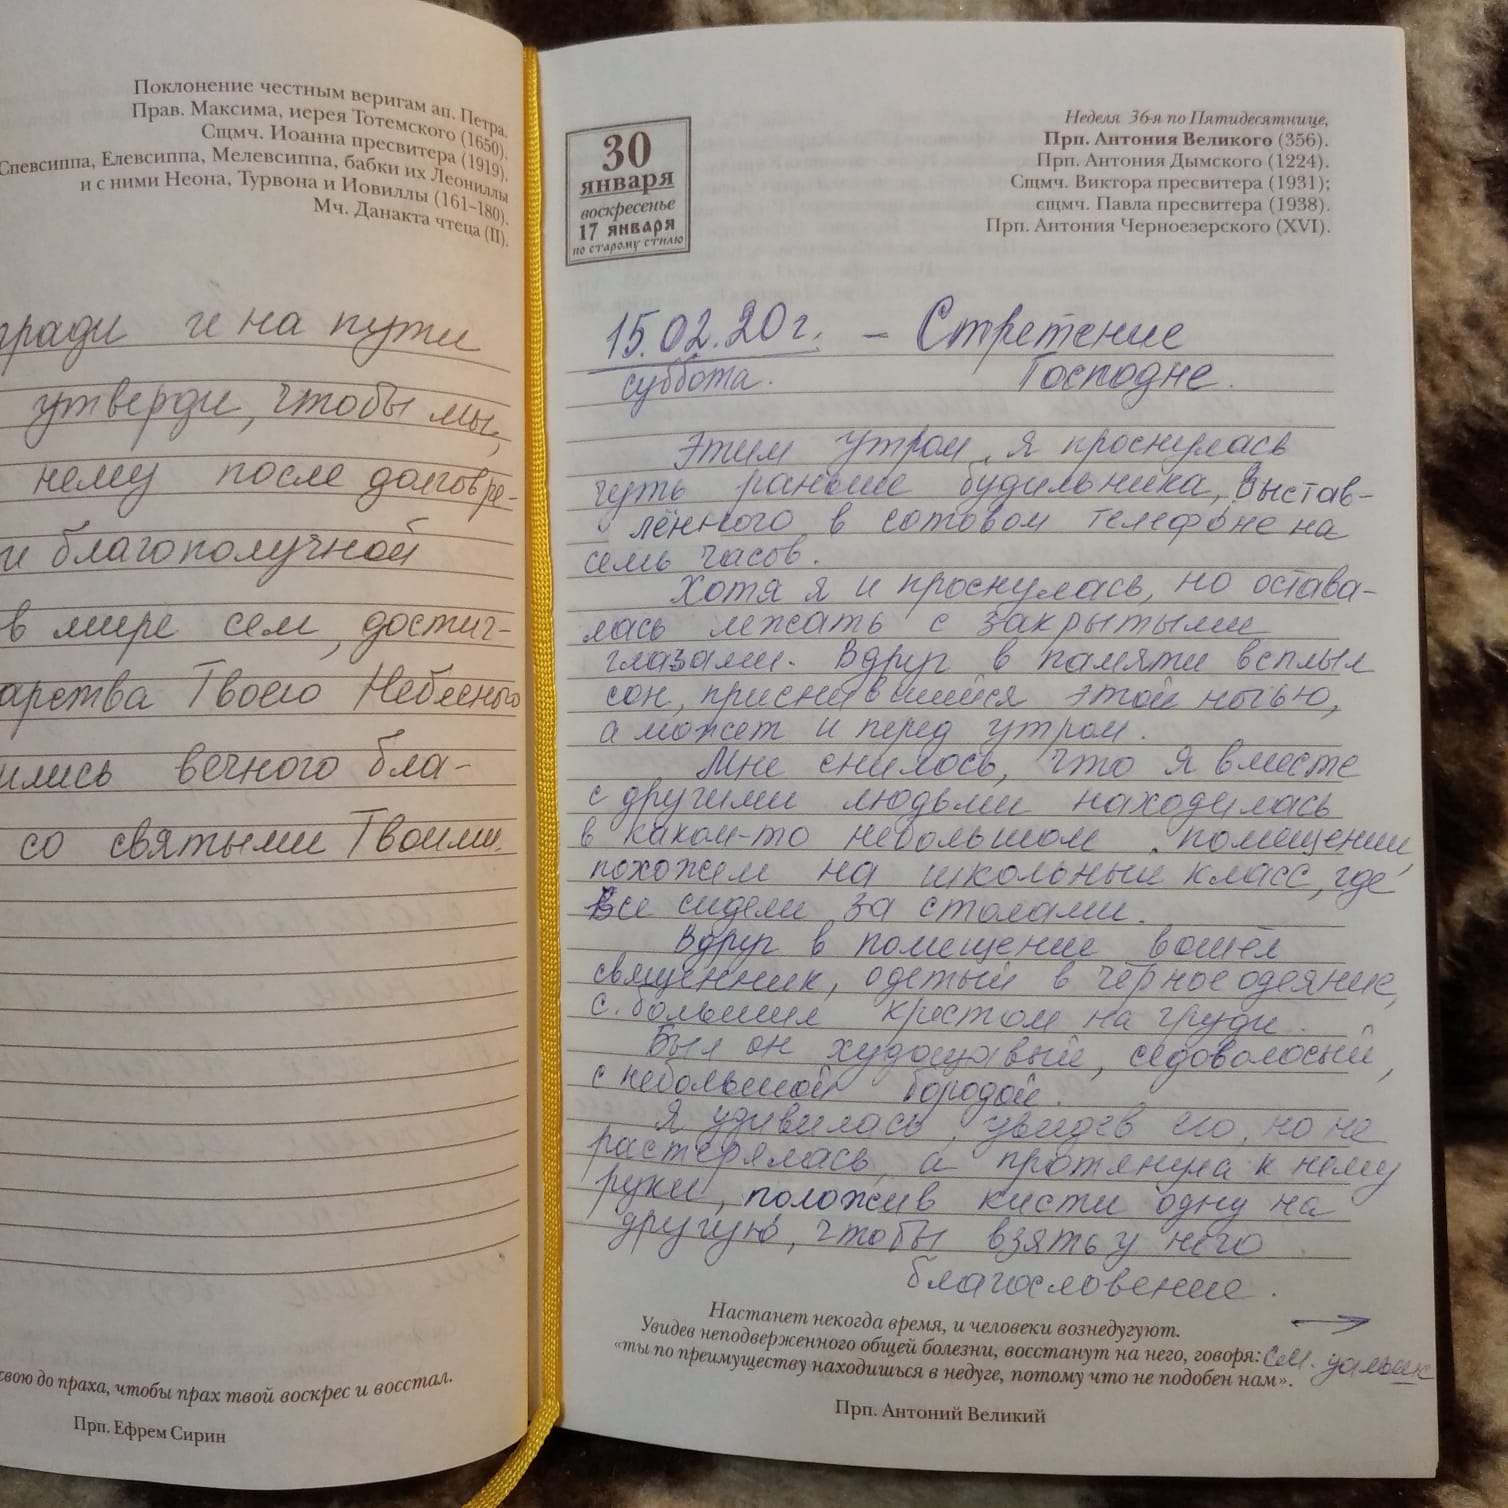 Поклонение честным веригам ап. Петра.
Прав. Максима, иерея Тотемского (1650).
Сщмч. Иоанна пресвитера (1919).
Спевсиппа, Елевсиппа, Мелевсиппа, бабки их Леониллы
и с ними Неона, Турвона и Иовиллы (161–180).
Мч. Данакта чтеца (II).
гради и на пути
утверди, чтобы мы,
нему после долговре-
и благополучной
в мире сем, достиг-
арства Твоего Небесного
ились вечного бла-
со святыми Твоими.
свою до праха, чтобы прах твой воскрес и восстал.
Прп. Ефрем Сирин
30
января
воскресенье
17 января
по старому стилю
Неделя 36-я по Пятидесятнице,
Прп. Антония Великого (356).
Прп. Антония Дымского (1224).
Сщмч. Виктора пресвитера (1931);
сщмч. Павла пресвитера (1938).
Прп. Антония Черноезерского (XVI).
15.02.20 г. – Стретение
суббота. Господне.
Этим утром, я проснулась
чуть раньше будильника, выстав-
лённого в сотовом телефоне на
семь часов.
Хотя я и проснулась, но остава-
лась лежать с закрытыми
глазами. Вдруг в памяти всплыл
сон, приснившийся этой ночью,
а может и перед утром.
Мне снилось, что я вместе
с другими людьми находилась
в каком-то небольшом помещении,
похожем на школьный класс, где
все сидели за столами.
Вдруг в помещение вошёл
священник, одетый в чёрное одеяние,
с большим крестом на груди.
Был он худощавый, седоволосый,
с небольшой бородой.
Я удивилась, увидев его, но не
растерялась, а протянула к нему
руки, положив кисти одну на
другую, чтобы взять у него
благословение.
Настанет некогда время, и человеки вознедугуют.
Увидев неподверженного общей болезни, восстанут на него, говоря:
«ты по преимуществу находишься в недуге, потому что не подобен нам».
Прп. Антоний Великий
→
см. дальше